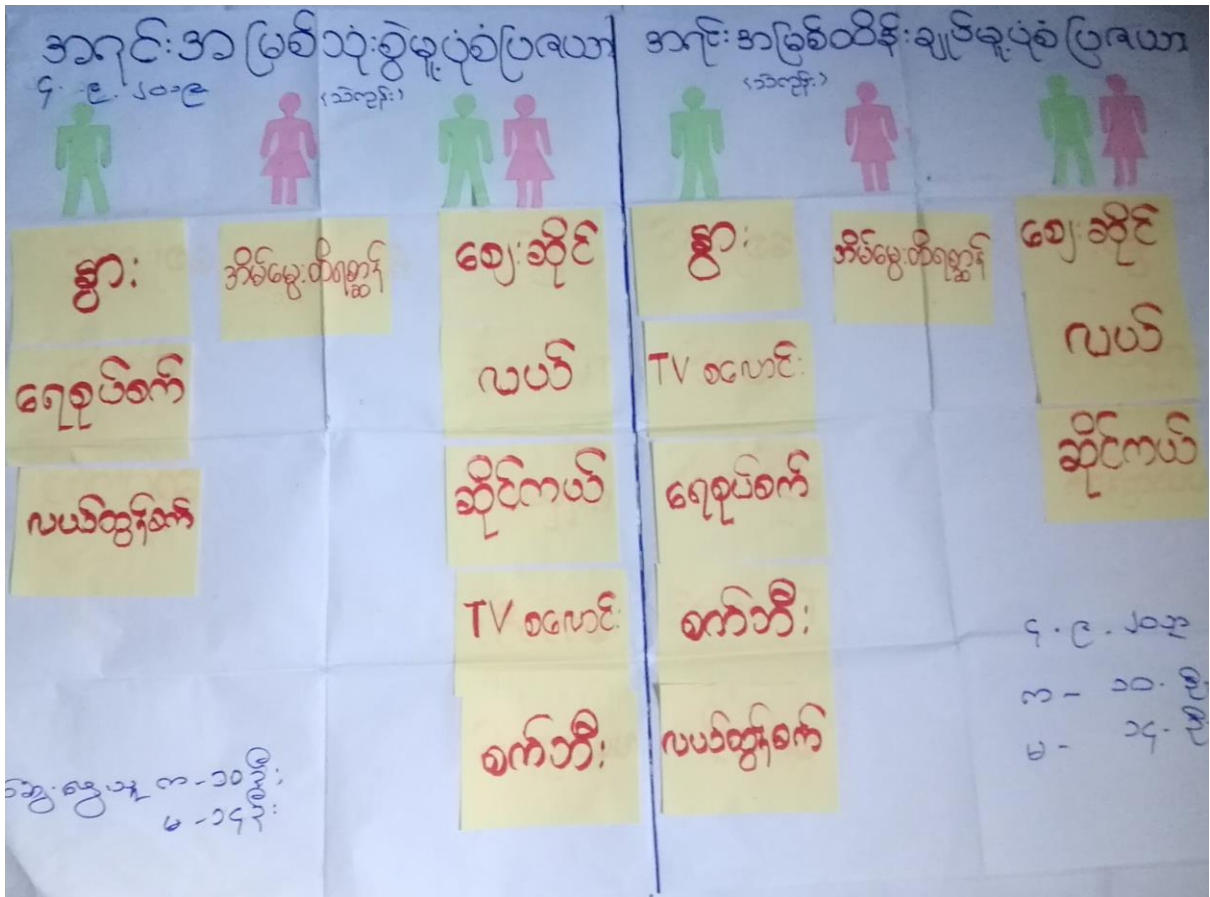 အရင်းအမြစ်သုံးစွဲမှုပုံစံပြဇယား
၄.၉.၂၀၁၉
(သဲကုန်း)
နွား
ရေစုပ်စက်
လယ်ထွန်စက်
အိမ်မွေးတိရစ္ဆာန်
ဈေးဆိုင်
လယ်
ဆိုင်ကယ်
TV စလောင်း
စက်ဘီး
ဆွေးနွေးသူ က - ၁၀ ဦး
မ - ၁၄ ဦး
အရင်းအမြစ်ထိန်းချုပ်မှုပုံစံပြဇယား
(သဲကုန်း)
နွား
TV စလောင်း
ရေစုပ်စက်
စက်ဘီး
လယ်ထွန်စက်
အိမ်မွေးတိရစ္ဆာန်
ဈေးဆိုင်
လယ်
ဆိုင်ကယ်
၄.၉.၂၀၁၉
က - ၁၀ ဦး
မ - ၁၄ ဦး